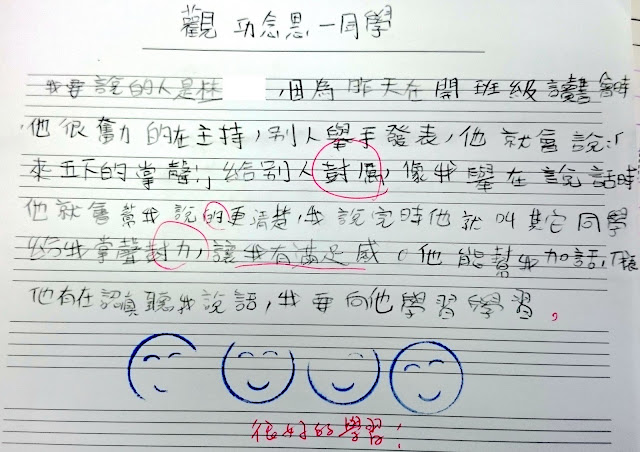 觀功念恩一同學
我要說的人是林 ,因為昨天在開班級讀書會時
他很奮力的在主持,別人舉手發表,他就會說:「
來五下的掌聲!」給別人封厲,像我舉在說話時
他就會幫我說的更清楚,我說完時他就叫其它同學
給我掌聲封力,讓我有滿足感。他能幫我加話,代表
他有在認真聽我說話,我要向他學習學習。
很好的學習!